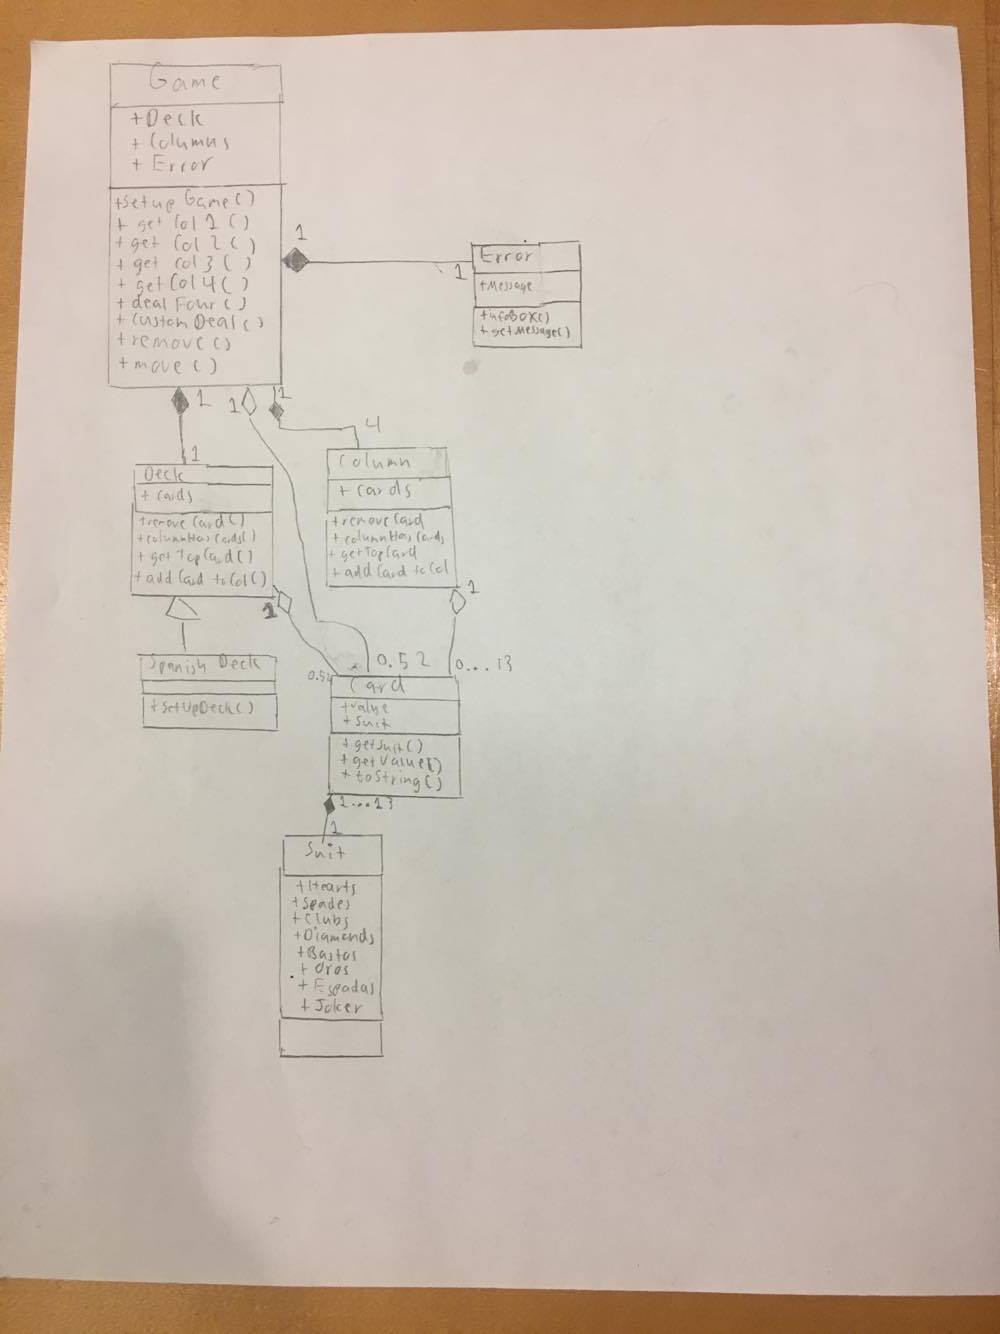 Game
+Deck
+ Columns
+ Error
+Setup Game()
+ get Col 1 ()
+get Col 2 ()
+ get Col 3 ()
+ getCol 4 ()
+deal Four ()
+CustomDeal()
+remove()
+move()
1
1
Error
+Message
+infoBOX()
+getMessage()
1
1
1
4
1
Deck
+ Cards
+remove Card()
+columnHas Cards()
+getTopCard()
+add Card to Col()
Column
+ Cards
+removeCard
+columnHas Cards
+getTopCard
+add Card to Col
1
1
Spanish Deck
+SetUpDeck()
0.52
0.52
0...13
Card
+value
+Suit
+getSuit()
+getValue()
+toString()
1...13
1
Suit
+Hearts
+Spades
+Clubs
+Diamonds
+Bastos
+Oros
+Espadas
+Joker